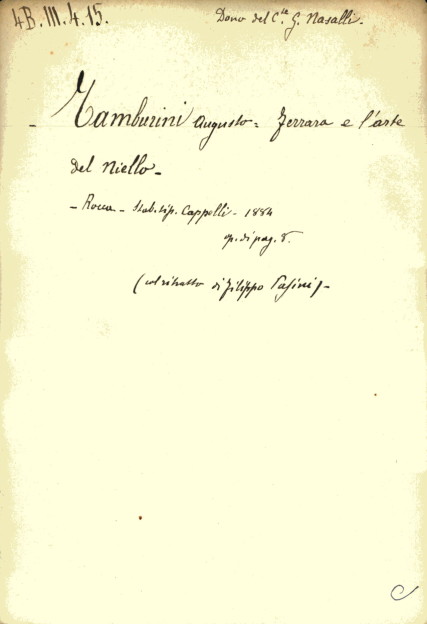 4B.III.4.15.
Dono del C.te G. Nasalli.
Tamburini Augusto = Ferrara e l'arte
del Niello -
- Rocca - Stab. tip. Cappelli - 1884
op. di pag. 8.
(col ritratto di Filippo Pasini) -